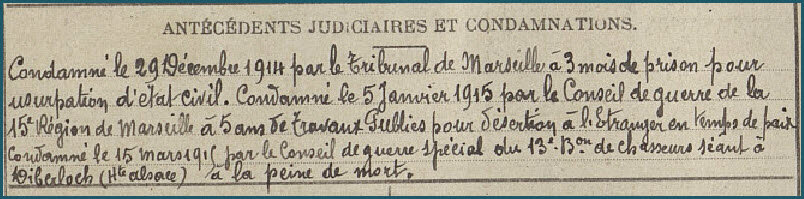 ANTÉCÉDENTS JUDICIAIRES ET CONDAMNATIONS.
Condamné le 29 Décembre 1914 par le Tribunal de Marseille à 3 mois de prison pour
usurpation d'état civil. Condamné le 5 Janvier 1915 par le Conseil de guerre de la
15e Région de Marseille à 5 ans de travaux Publics pour désertion à l'Etranger en temps de paix
Condamné le 15 mars 1915 par le Conseil de guerre spécial du 13e Bon de chasseurs séant à
Biberloch (Hte alsace) à la peine de mort.